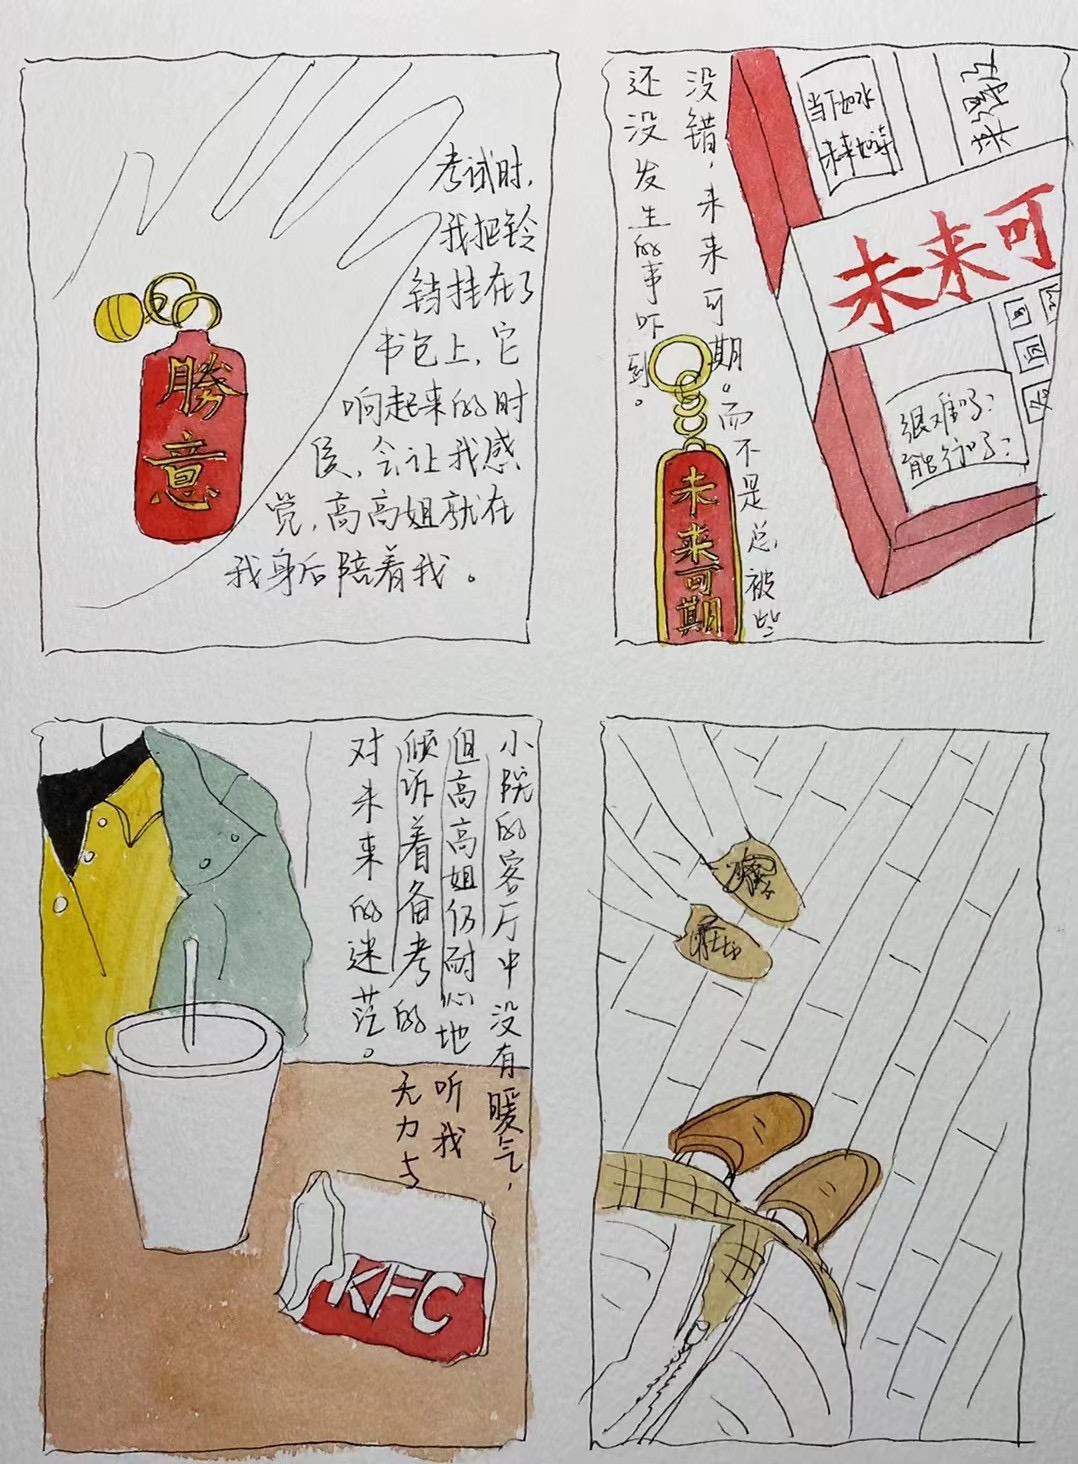 考试时,
我把铃
铛挂在了
书包上,它
响起来的时
候,会让我感
觉,高高姐就在
我身后陪着我。
勝意
没错,未来可期。
而不是总被些
还没发生的事吓到。
当下如水
未来可
很难吗?
能行吗?
未来可期
小院的客厅中没有暖气,
但高高姐仍耐心地听我
倾诉着备考的无力与
对未来的迷茫。
KFC